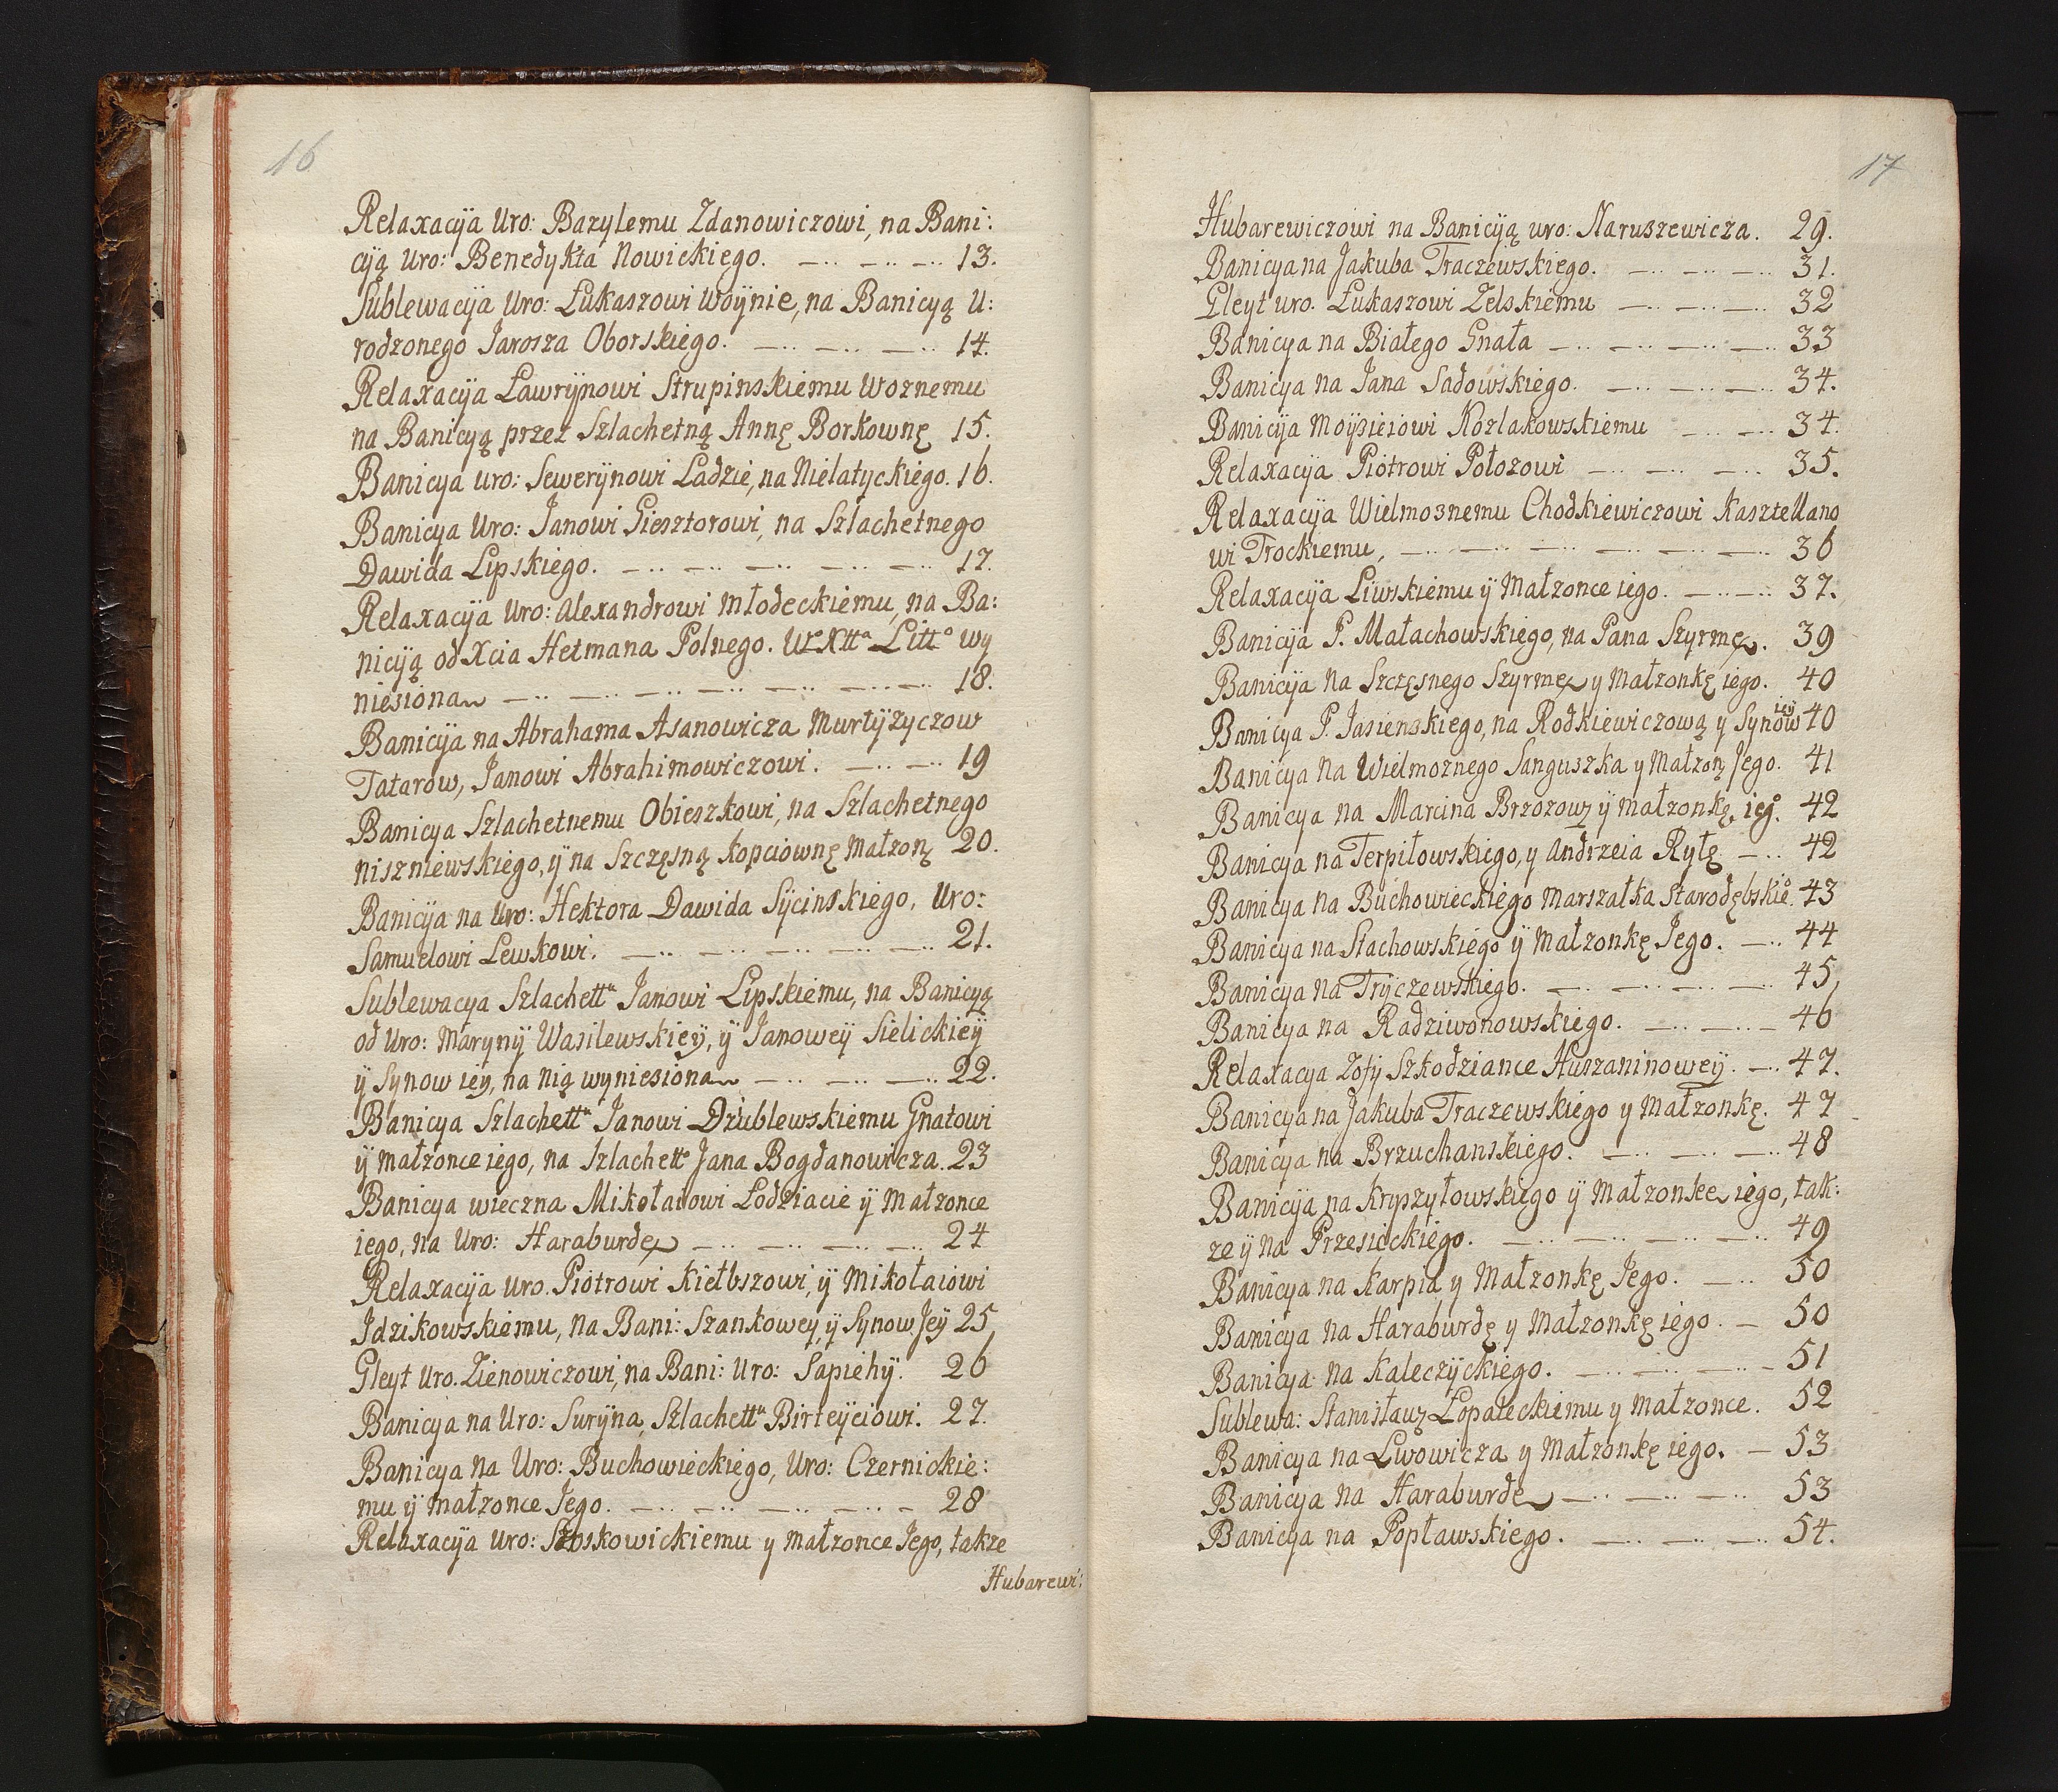 16
Relaxacÿa Uro: Bazylemu Zdanowiczowi, na Bani:
cÿą Uro: Benedykta Nowickiego. 13.
Sublewacÿa Uro: Łukaszowi Woÿnie, na Banicyą U:
rodzonego Jarosza Oborskiego. 14.
Relaxacÿa Ławrÿnowi Strupinskiemu Woznemu
na Banicyą przez Szlachetną Annę Borkownę 15.
Banicya uro: Sewerÿnowi Ładzie, na Nielatyckiego. 16.
Banicya Uro: Janowi Giesztorowi, na Szlachetnego
Dawida Lipskiego. 17.
Relaxacÿa Uro: Alexandrowi Młodeckiemu, na Ba:
nicÿą od Xcia Hetmana Polnego. Wº Xttª Littº wy
niesiona 18.
Banicÿa na Abrahama Asanowicza Murtÿzyczow
Tatarow, Janowi Abrahimowiczowi. 19
Banicya Szlachetnemu Obieszkowi, na Szlachetnego
Niszniewskiego, ÿ na Szczęsną Kopciownę Małzoną 20.
Banicÿa na Uro: Hektora Dawida Sÿcinskiego, Uro:
Samuelowi Lewkowi. 21.
Sublewacya Szlachettu Janowi Lipskiemu, na Banicyą
od Uro: Marynÿ Wasilewskieÿ, ÿ Janoweÿ Sielickieÿ
ÿ Synow ieÿ, na nią wyniesiona 22.
Banicya Szlachettu Janowi Dziublewskiemu Gnatowi
ÿ małzonce iego, na Szlachettº Jana Bogdanowicza. 23
Banicya wieczna Mikołaiowi Łodziacie ÿ Małzonce
iego, na Uro: Haraburdę 24
Relaxacÿa uro. Piotrowi Kiełbszowi, ÿ Mikołaiowi
Jdzikowskiemu, na Bani: Szankowey, ÿ Synow Jeÿ 25
Gleyt Uro. Zienowiczowi, na Bani: Uro: Sapiehÿ. 26
Banicya na Uro: Surÿna, Szlachettu Birteÿciowi. 27.
Banicya na Uro: Buchowieckiego, Uro: Czernickie:
mu ÿ małzonce Jego. 28
Relaxacÿa Uro: Szoskowickiemu y małzonce Jego, takze
Hubarewi:
17
Hubarewiczowi na Banicÿą uro: Naruszewicza. 29.
Banicya na Jakuba Traczewskiego. 31.
Gleyt uro. Łukaszowi Zelskiemu 32
Banicya na Białego Gnata 33
Banicya na Jana Sadowskiego. 34.
Banicÿa Moÿsieiowi Kozlakowskiemu 34.
Relaxacÿa Piotrowi Połozowi 35.
Relaxacÿa Wielmoznemu Chodkiewiczowi Kasztellano
wi Trockiemu, 36
Relaxacÿa Liwskiemu ÿ Małzonce iego. 37.
Banicÿa P. Małachowskiego, na Pana Szyrmę. 39
Banicÿa na Szczęsnego Szyrmę y Małzonkę iego. 40
Banicya P. Jasienskiego, na Rodkiewiczową y Synow ieÿ 40
Banicya na Wielmoznego Sanguszka y Małzoną Jego. 41
Banicya na Marcina Brzozowz ÿ małzonkę iegº. 42
Banicya na Terpiłowskiego, y Andrzeia Rytę 42
Banicya na Buchowieckiego Marszałka Starodębskiº. 43
Banicya na Stachowskiego ÿ Małzonkę Jego. 44
Banicya na Trÿczewskiego. 45,
Banicya na Radziwonowskiego. 46
Relaxacya Zofÿ Szkodziance Huszaninoweÿ. 47.
Banicya na Jakuba Traczewskiego y Małzonkę. 47
Banicya na Brzuchanskiego. 48
Banicÿa na Krypzytowskiego ÿ Małzonkę iego, tak:
ze ÿ na Przesieckiego. 49
Banicya na Karpia y Małzonkę Jego. 50
Banicya na Haraburdę y Małzonkę iego. 50
Banicya na Kaleczÿckiego. 51
Sublewa: Stanisławz Łopateckiemu y Małzonce. 52
Banicya na Lwowicza y Małzonkę iego. 53
Banicya na Haraburdę 53
Banicya na Popławskiego. 54.